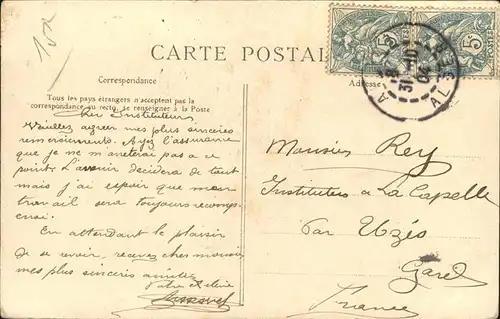 CARTE POSTALE
Correspondance
Adresse
Tous les pays étrangers n'acceptent pas la
correspondance au recto, se renseigner à la Poste
Cher Instituteur
Veuillez agréer mes plus sinceres
remerciements. Ayez l'assurance
que je ne m'areterai pas a ce
point. L'avenir decidera de tout
mais j'ai espoir que mon
travail sera toujours recomp-
ensé.
En attendant le plaisir
de se revoir, recevez cher monsieur
mes plus sinceres amitiés
Votre élève
Monsieur Rey
Instituteur a La Capelle
Par Uzès
Gard
France
5
5
31 10
04